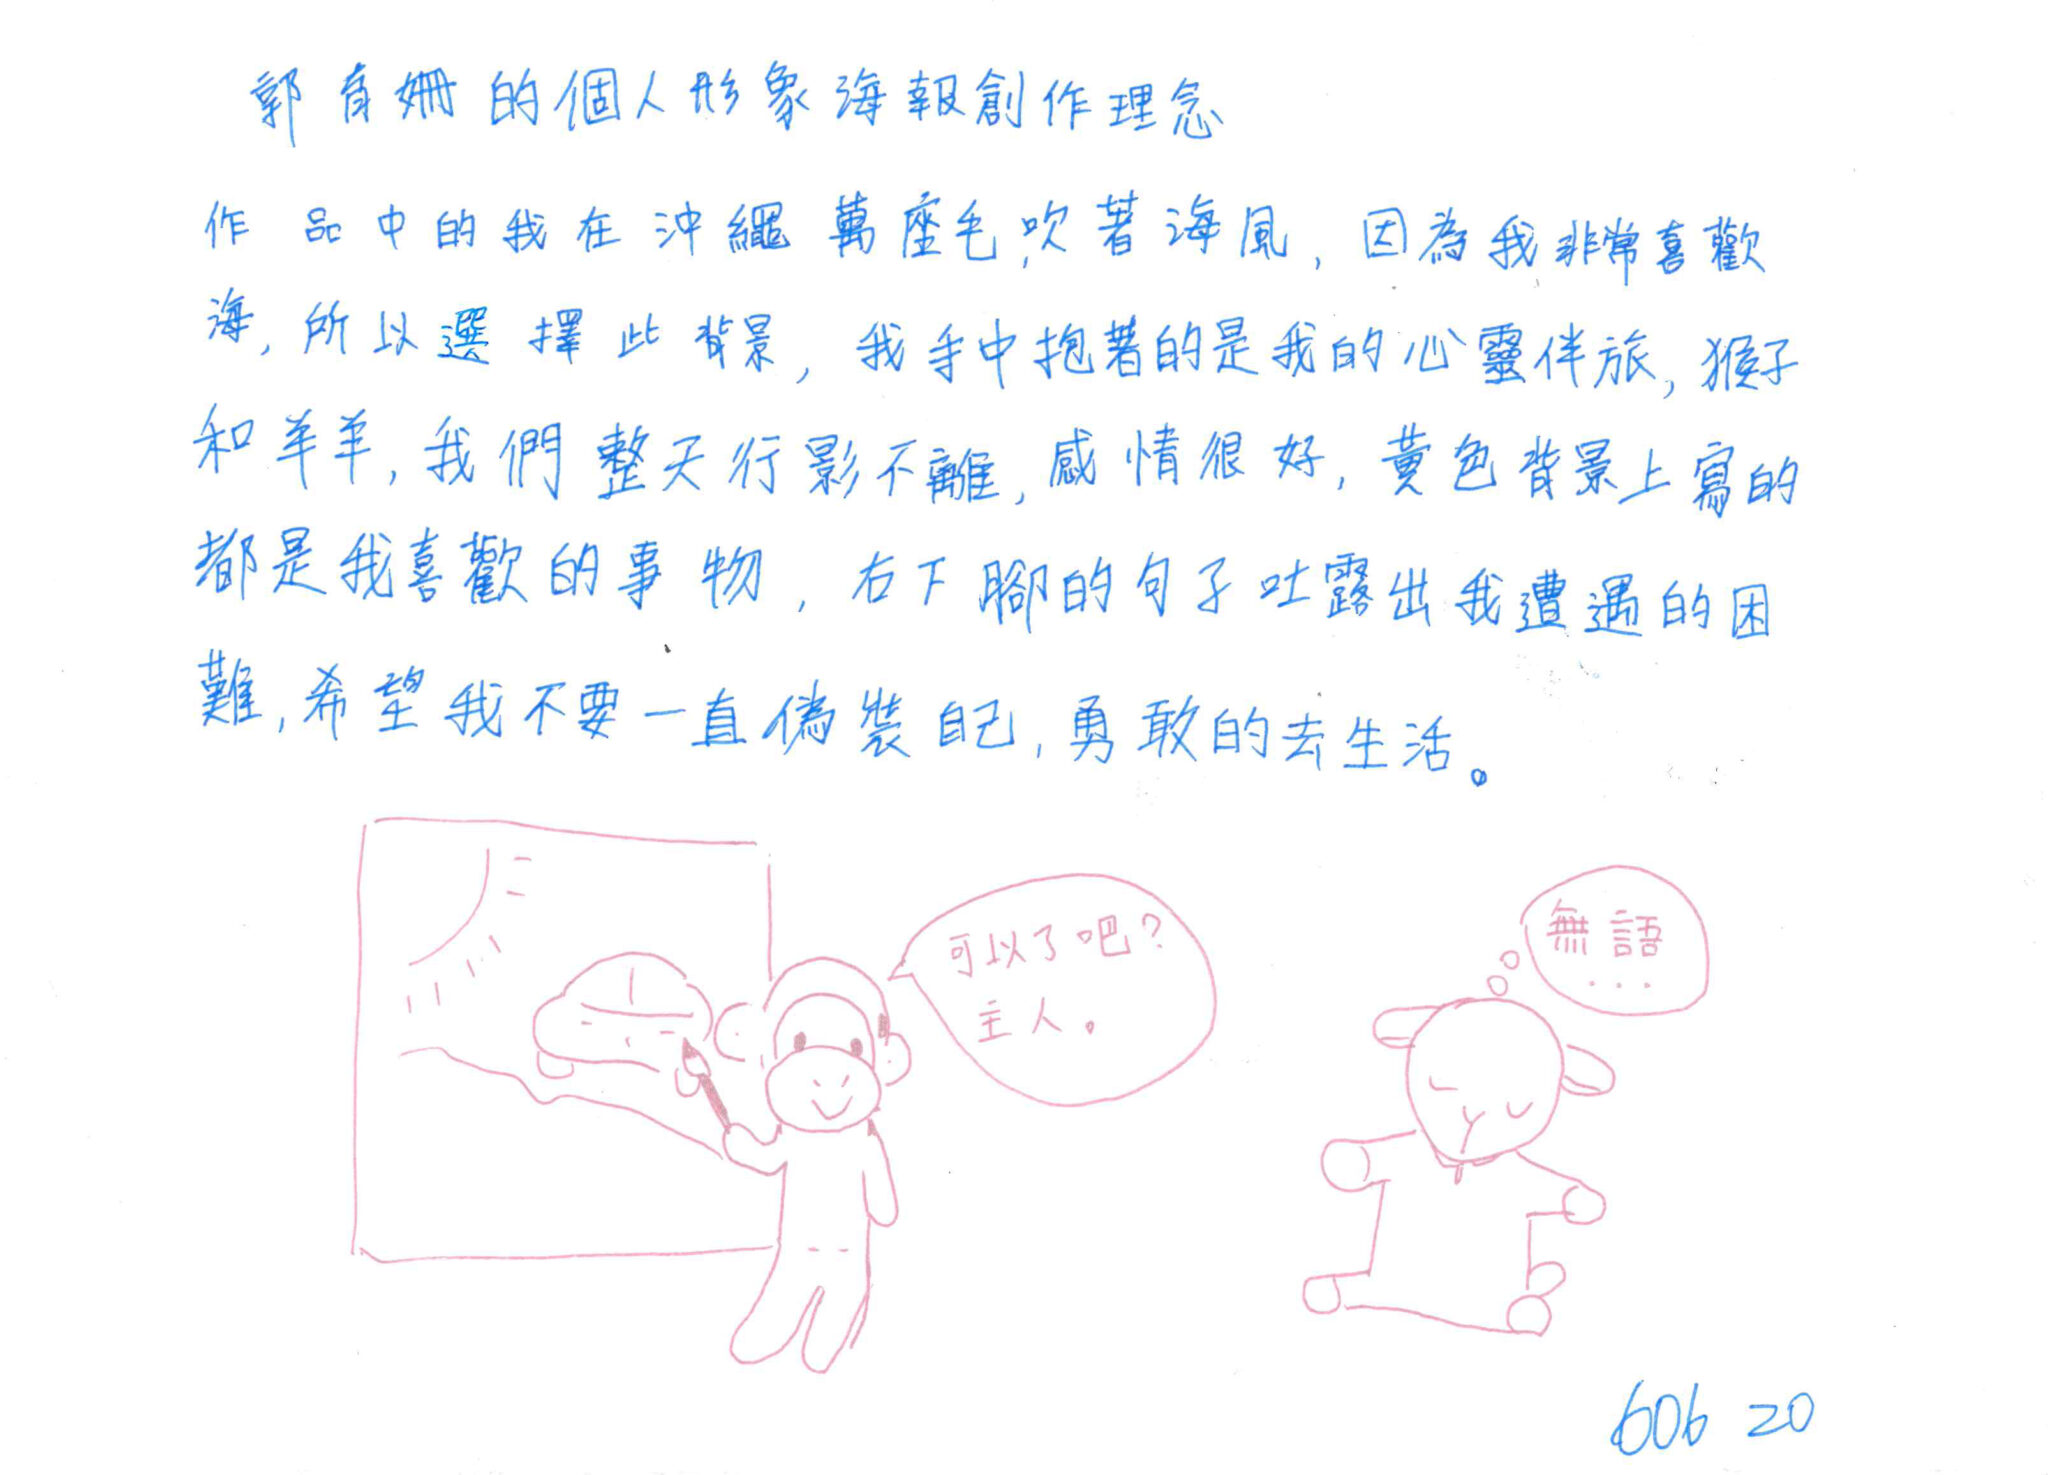 郭育姍的個人形象海報創作理念
作品中的我在沖繩萬座毛,吹著海風,因為我非常喜歡
海,所以選擇此背景,我手中抱著的是我的心靈伴旅,猴子
和羊羊,我們整天行影不離,感情很好,黃色背景上寫的
都是我喜歡的事物,右下腳的句子吐露出我遭遇的困
難,希望我不要一直偽裝自己,勇敢的去生活。
可以了吧?
主人。
無語
...
606 20